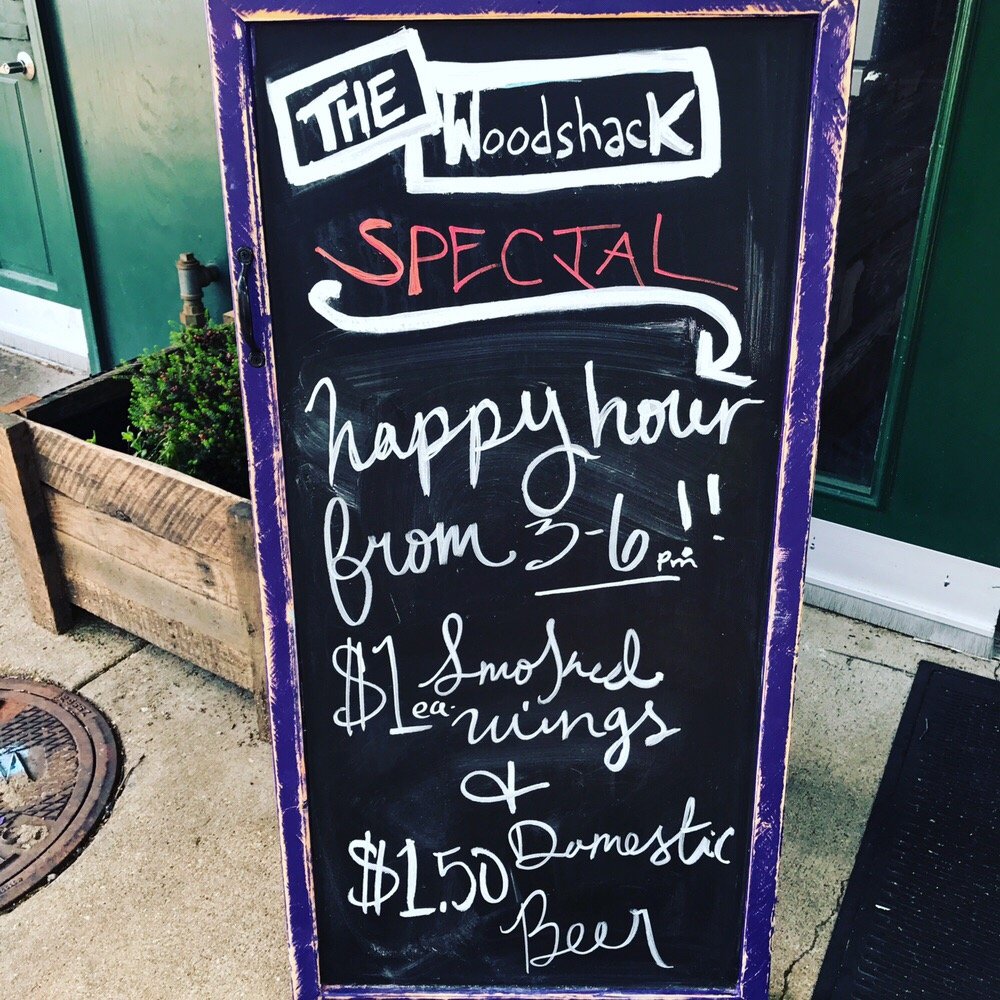 THE WoodshacK
SPECIAL
happy hour
from 3-6 pm!!
$1 ea. Smoked
wings
&
$1.50 Domestic
Beer